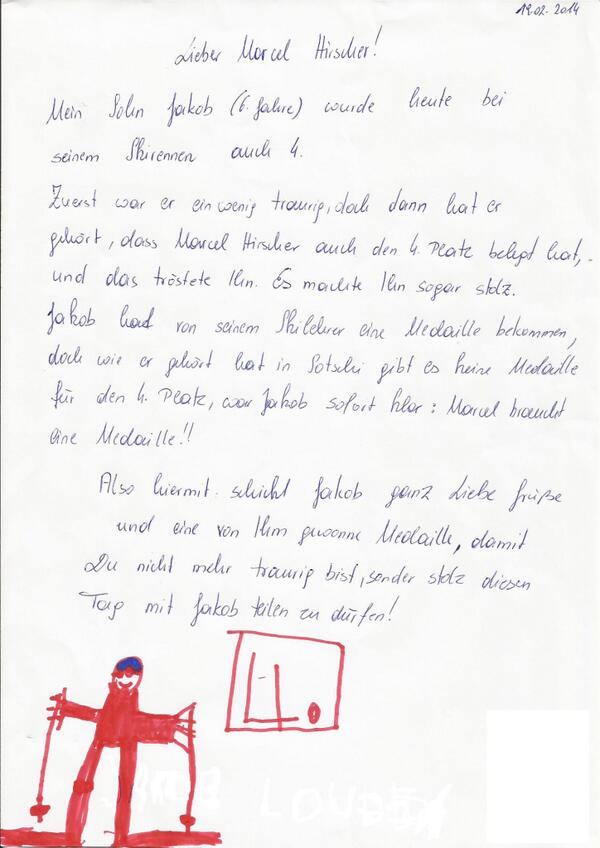 19.02.2014
Lieber Marcel Hirscher!
Mein Sohn Jakob (6. Jahre) wurde heute bei
seinem Skirennen auch 4.
Zuerst war er ein wenig traurig, doch dann hat er
gehört, dass Marcel Hirscher auch den 4. Platz belegt hat,
und das tröstete Ihn. Es machte Ihn sogar stolz.
Jakob hat von seinem Skilehrer eine Medaille bekommen,
doch wie er gehört hat in Sotschi gibt es keine Medaille
für den 4. Platz, war Jakob sofort klar: Marcel braucht
eine Medaille!!
Also hiermit schickt Jakob ganz Liebe Grüße
und eine von Ihm gewonne Medaille, damit
Du nicht mehr traurig bist, sonder stolz diesen
Tag mit Jakob teilen zu dürfen!
4.